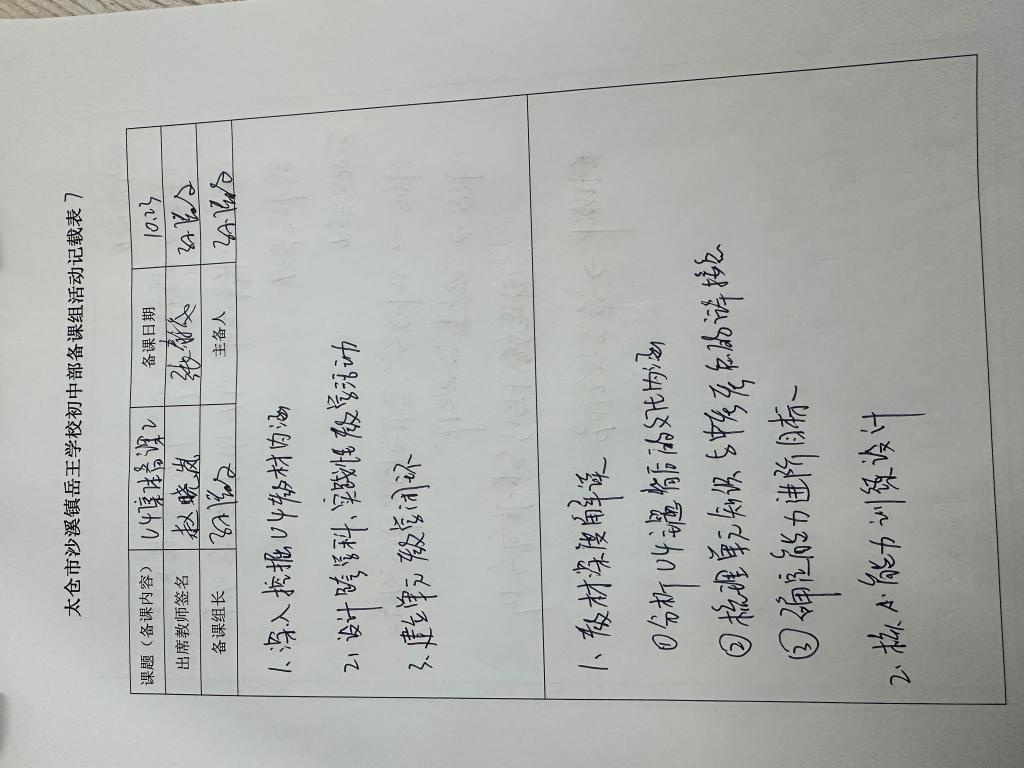 太仓市沙溪镇岳王学校初中部备课组活动记载表 7
课题（备课内容） U4集体备课2 备课日期 10.23
出席教师签名 赵晓岚
备课组长 主备人
1、深入挖掘U4教材内涵
2、设计跨学科、实践性教学活动
3、建立单元教学闭环
1、教材深度解读
①分析U4话题背后的文化内涵
②梳理单元知识与中考考点的衔接
③确定能力进阶目标、
2、核心能力训练设计